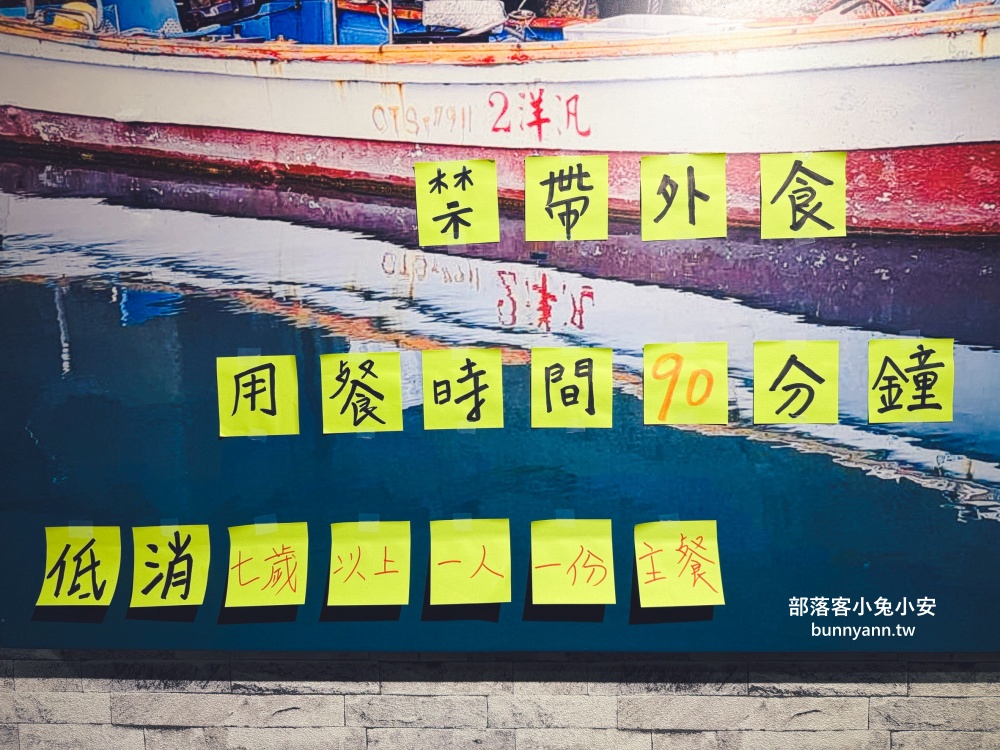 CTS 7911 2洋汎
禁帶外食
用餐時間90分鐘
低消七歲以上一人一份主餐
部落客小兔小安
bunnyann.tw